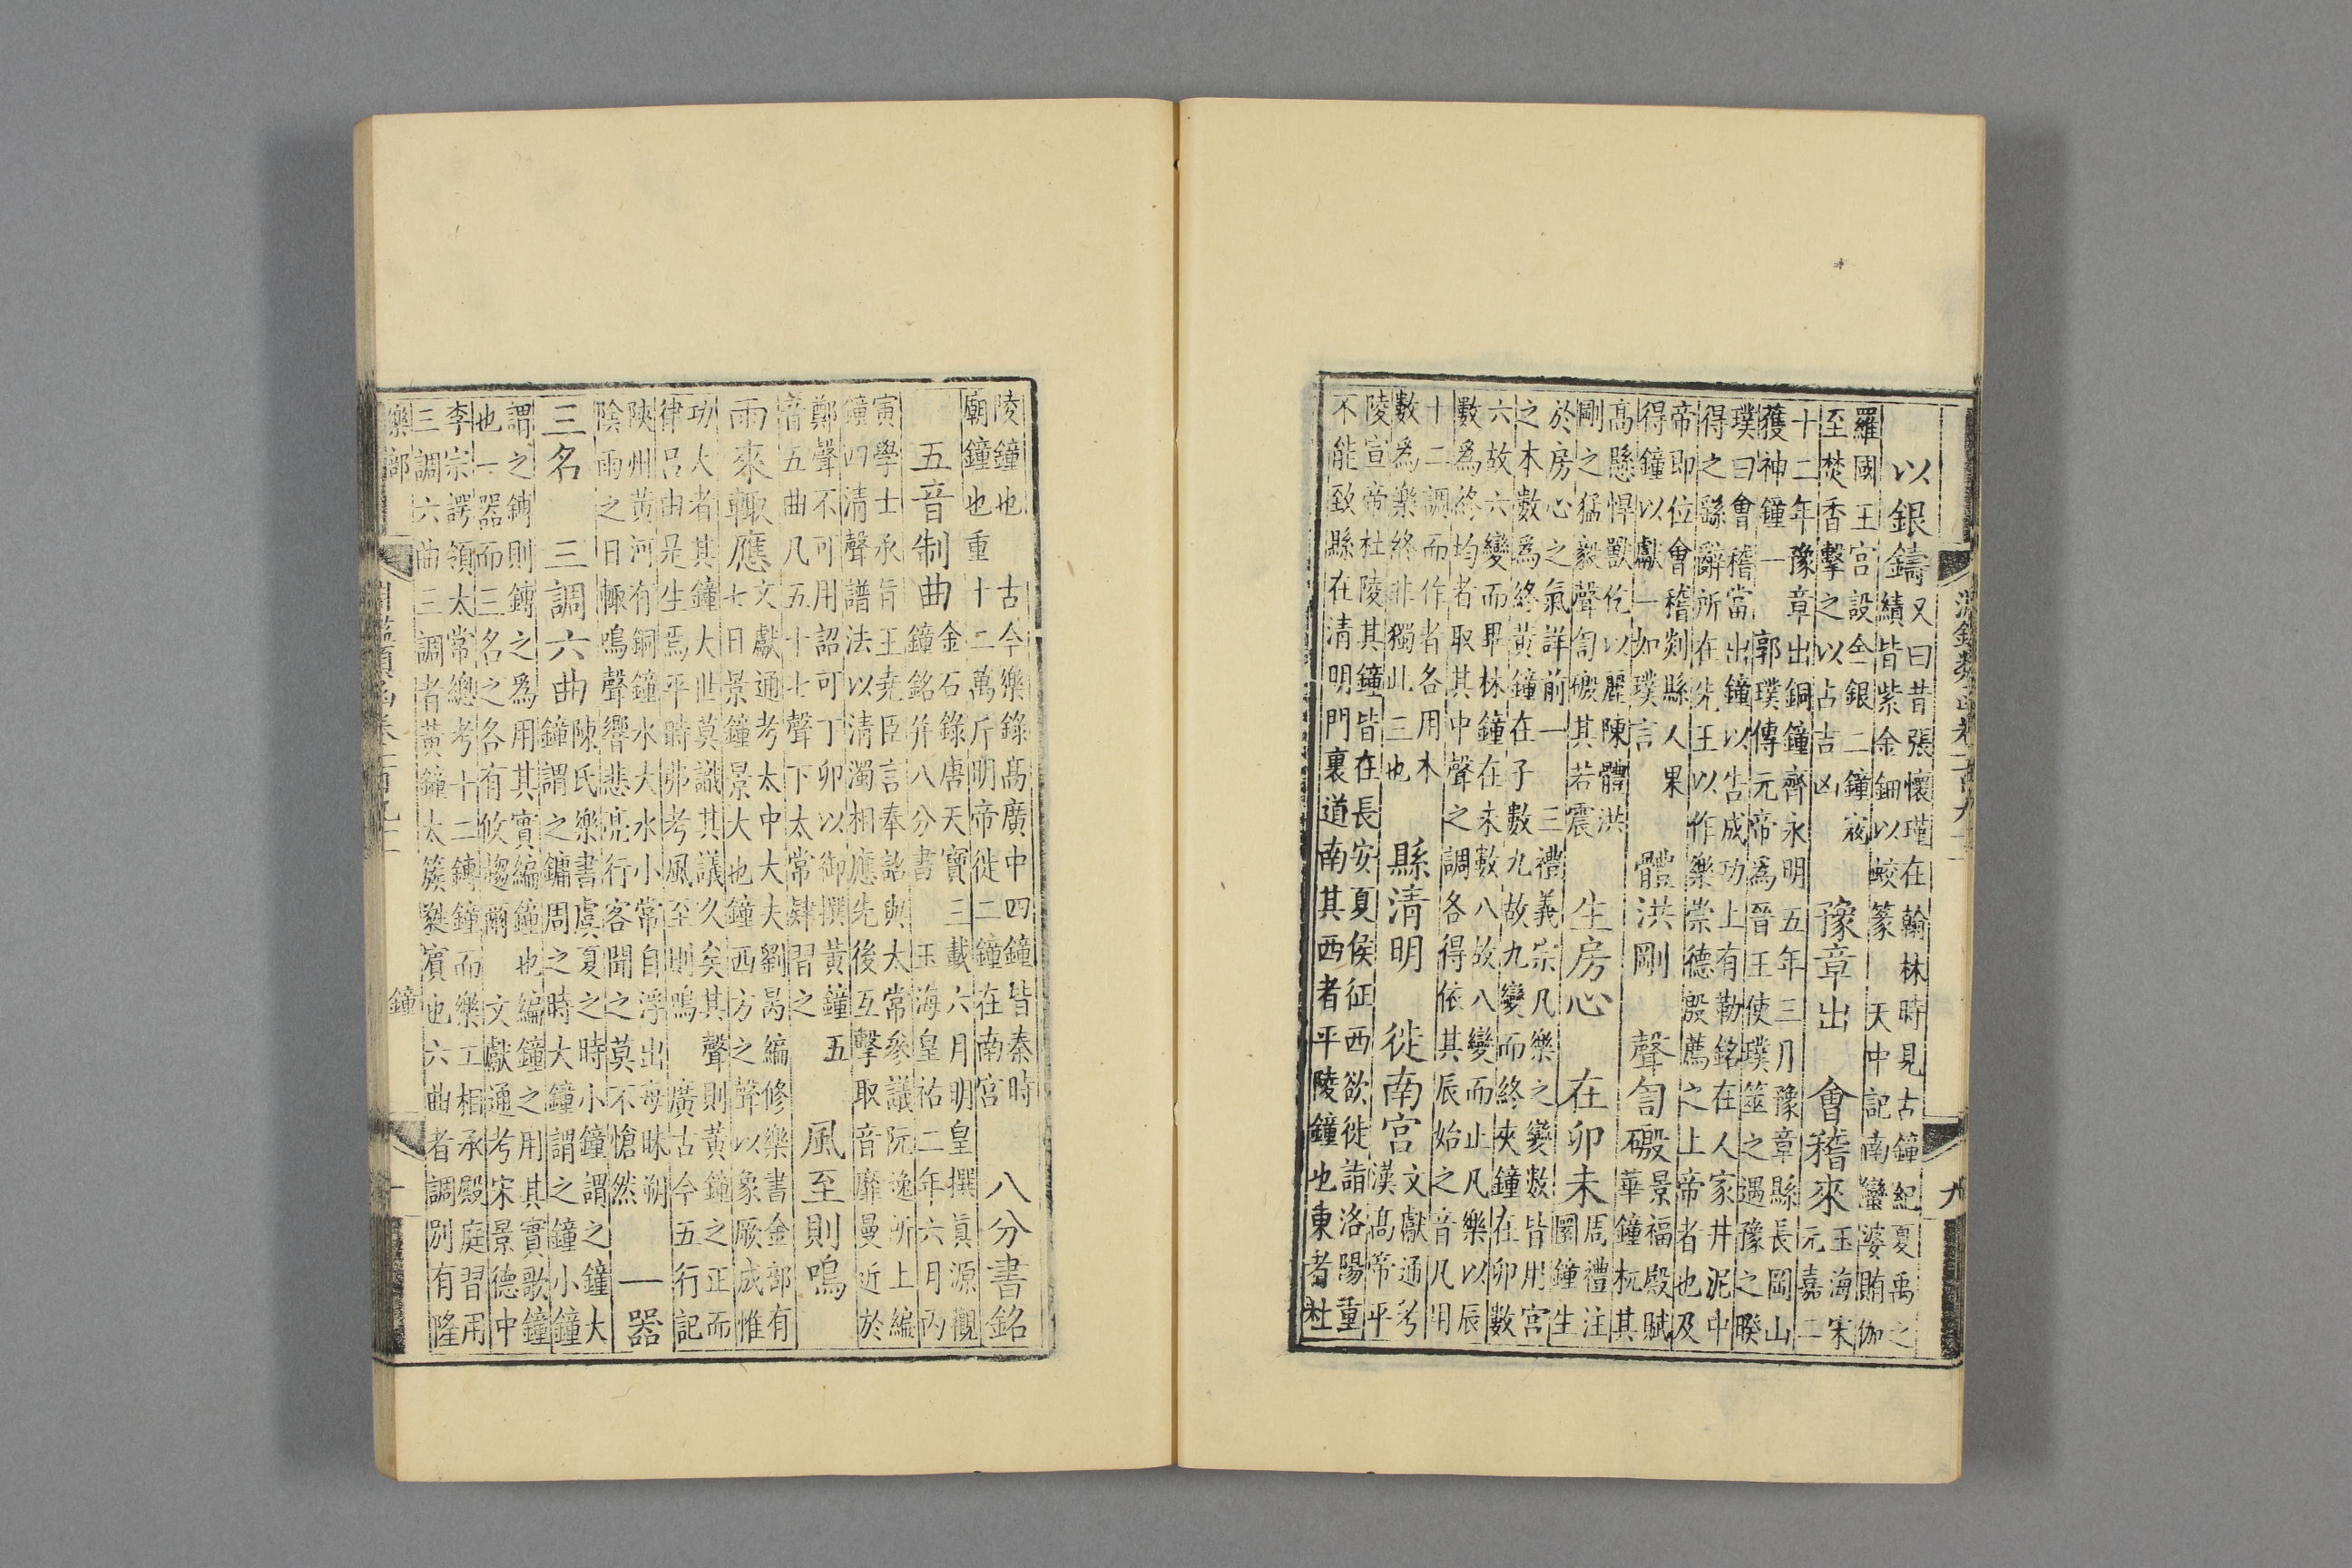 淵鑑類函卷一百九十一 九
以銀鑄 又曰昔張懷瑾在翰林時見古鐘紀夏禹之
績皆紫金鈿以蛟篆 天中記南蠻婆賄伽
羅國王宮設金銀二鐘寇
至焚香擊之以占吉凶 豫章出 會稽來 玉海宋
元嘉二
十二年豫章出銅鐘齊永明五年三月豫章縣長岡山
獲神鐘一 郭璞傳元帝爲晉王使璞筮之遇豫之睽
璞曰會稽當出鐘以告成功上有勒銘在人家井泥中
得之繇辭所在先王以作樂崇德殷薦之上帝者也及
帝即位會稽剡縣人果
得鐘以獻一如璞言 體洪剛 聲訇磤 景福殿賦
華鐘杌其
高懸悍獸仡以麗陳體洪
剛之猛毅聲訇磤其若震 生房心 在卯未 周禮注
圜鐘生
於房心之氣詳前一 三禮義宗凡樂之變數皆用宮
之本數爲終黃鐘在子數九故九變而終夾鐘在卯數
六故六變而畢林鐘在未數八故八變而止凡樂以辰
數爲終均者取其中聲之調各得依其辰始之音凡用
十二調而作者各用本
數爲樂終非獨此三也 縣清明 徙南宮 文獻通考
漢高帝平
陵宣帝杜陵其鐘皆在長安夏侯征西欲徙詣洛陽重
不能致縣在清明門裏道南其西者平陵鐘也東者杜
陵鐘也 古今樂錄高廣中四鐘皆秦時
廟鐘也重十二萬斤明帝徙二鐘在南宮 八分書銘
五音制曲 金石錄唐天寶三載六月明皇撰眞源觀
鐘銘幷八分書 玉海皇祐二年六月丙
寅學士承旨王堯臣言奉詔與太常參議阮逸所上編
鐘四清聲譜法以清濁相應先後互擊取音靡曼近於
鄭聲不可用詔可丁卯以御撰黃鐘五
音五曲凡五十七聲下太常肄習之 風至則鳴
雨來輙應 文獻通考太中大夫劉昺編修樂書金部有
七曰景鐘景大也鐘西方之聲以象厥成惟
功大者其鐘大世莫識其議久矣其聲則黃鐘之正而
律呂由是生焉平時弗考風至則鳴 廣古今五行記
陝州黃河有銅鐘水大水小常自浮出每晦朔
陰雨之日輙鳴聲響悲亮行客聞之莫不愴然 一器
三名 三調六曲 陳氏樂書虞夏之時小鐘謂之鐘大
鐘謂之鏞周之時大鐘謂之鐘小鐘
謂之鎛則鎛之爲用其實編鐘也編鐘之用其實歌鐘
也一器而三名之各有攸趨爾 文獻通考宋景德中
李宗諤領太常總考十二鎛鐘而樂工相承殿庭習用
三調六曲三調者黃鐘太簇蕤賓也六曲者調別有隆
樂部 鐘 十